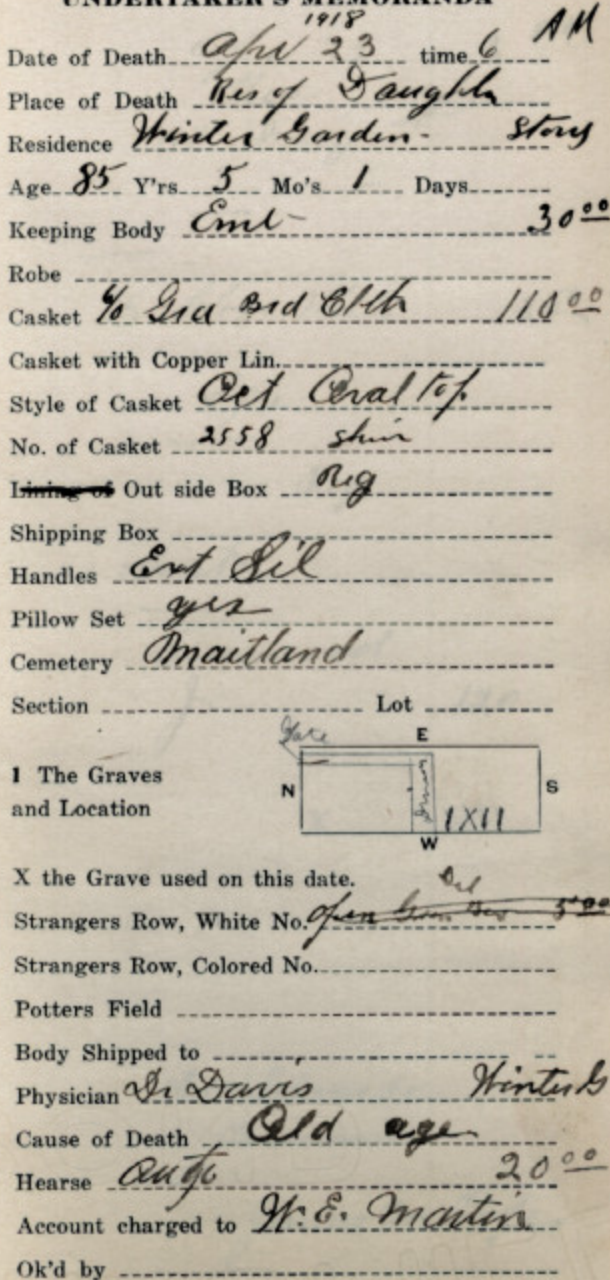 UNDERTAKER'S MEMORANDA
1918
Date of Death Apr 23 time 6 AM
Place of Death Res of Daughter
Residence Winter Garden -
Age 85 Y'rs 5 Mo's 1 Days
Keeping Body Eml - 30 00
Robe
Casket 6/0 Bd Cloth 110 00
Casket with Copper Lin.
Style of Casket Oct Oval top
No. of Casket 2558
Lining of Out side Box Reg
Shipping Box
Handles Ext Sil
Pillow Set yes
Cemetery Maitland
Section Lot
Gate E
1 The Graves
and Location
N S
1X11
W
X the Grave used on this date.
Strangers Row, White No. Open 5 00
Strangers Row, Colored No.
Potters Field
Body Shipped to
Physician Dr Davis Winter G
Cause of Death Old age
Hearse auto 20 00
Account charged to W. E. Martin
Ok'd by